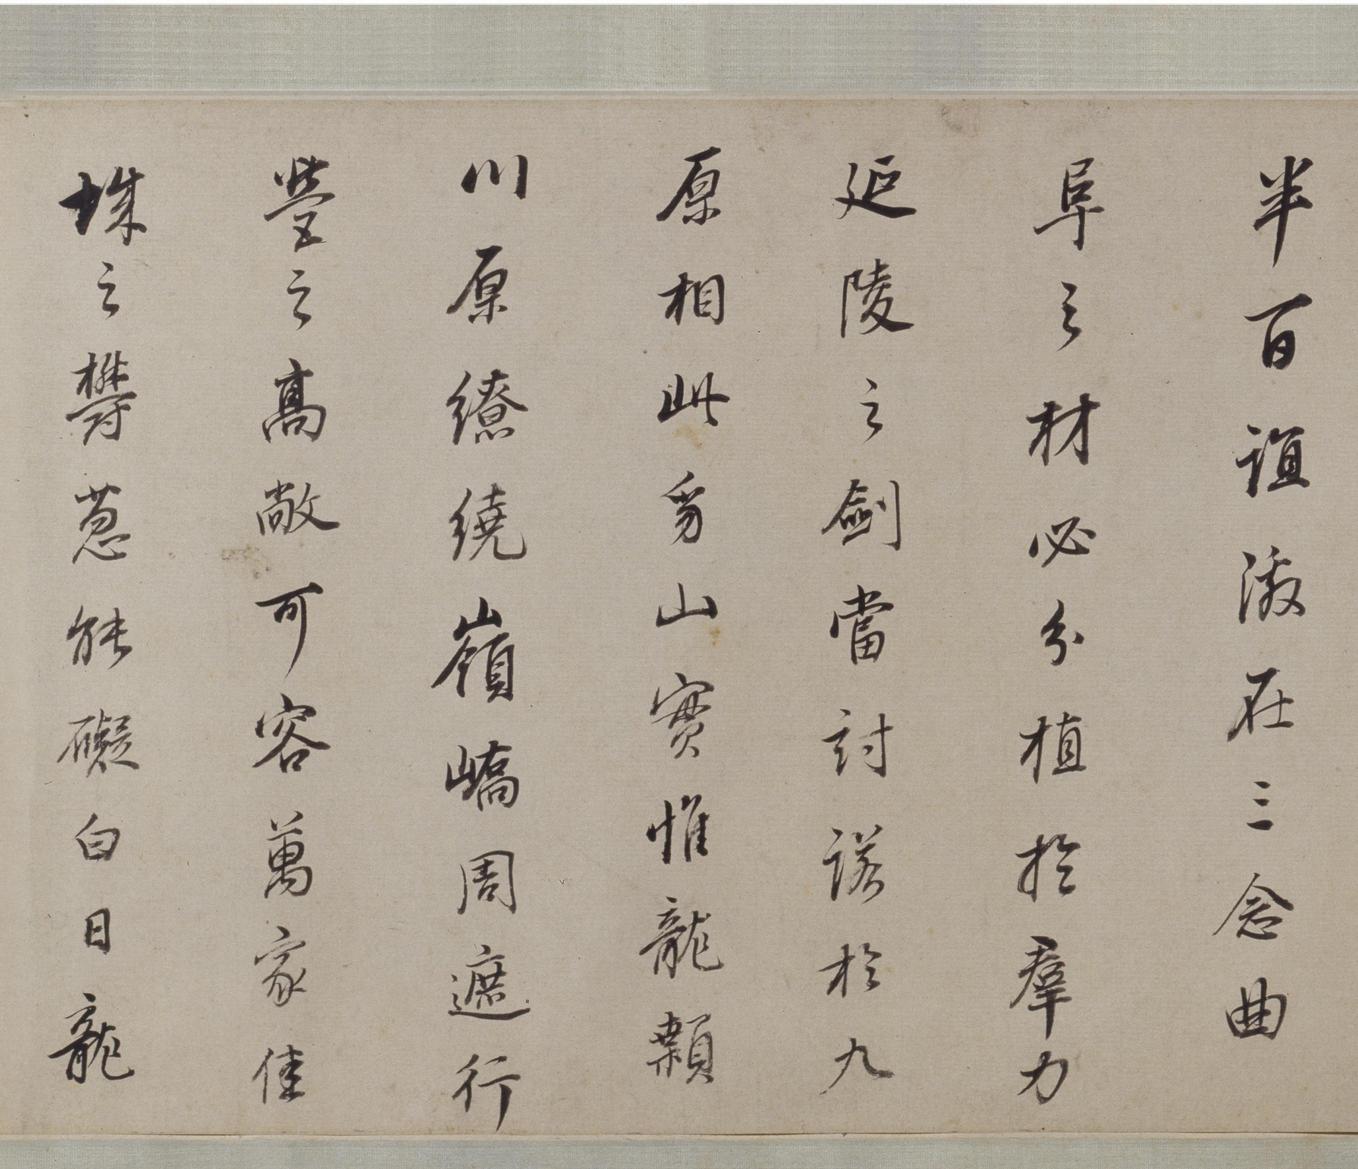 半百誼激在三念曲
阜之材必分植於羣力
延陵之劍當討諾於九
原相此豸山實惟龍顙
川原繚繞嶺嶠周遮行
塋之高敞可容萬家佳
城之欝葱能礙白日龍